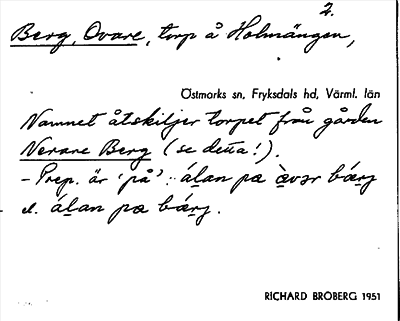 2.
Berg, Ovare, torp å Holmängen,
Östmarks sn, Fryksdals hd, Värml. län
Namnet åtskiljer torpet från gården
Nerare Berg (se detta!).
– Prep. är 'på': álan pæ æ̀vər bǽrj
el. álan pæ bǽrj.
RICHARD BROBERG 1951